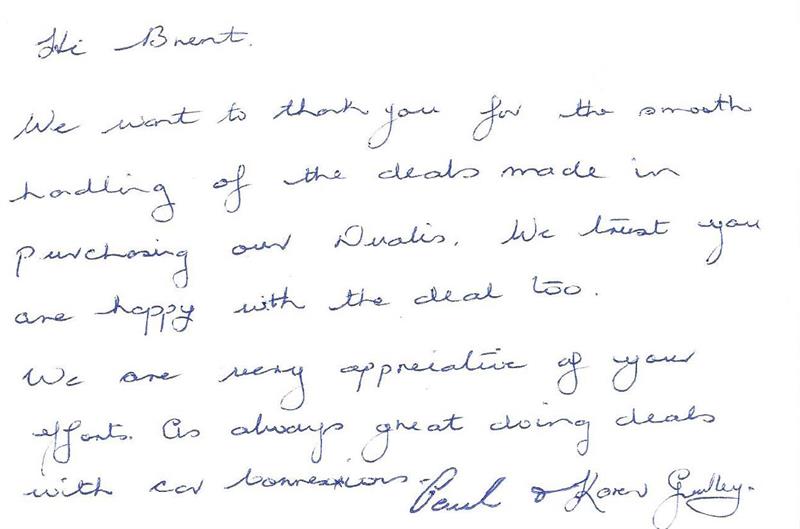 Hi Brent.
We want to thank you for the smooth
handling of the deals made in
purchasing our Dualis. We trust you
are happy with the deal too.
We are very appreiative of your
efforts. As always great doing deals
with car Paul & Karen